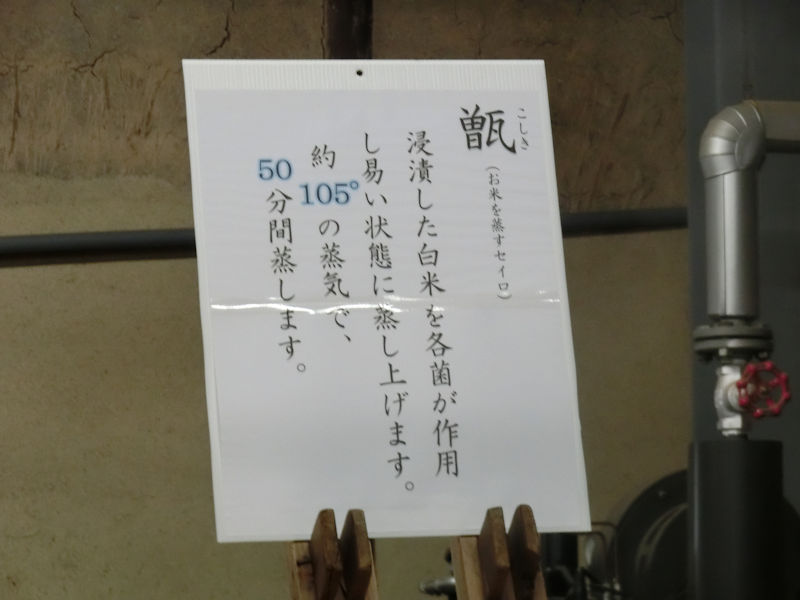 甑
こしき
(お米を蒸すセイロ)
浸漬した白米を各菌が作用
し易い状態に蒸し上げます。
約105°の蒸気で、
50分間蒸します。